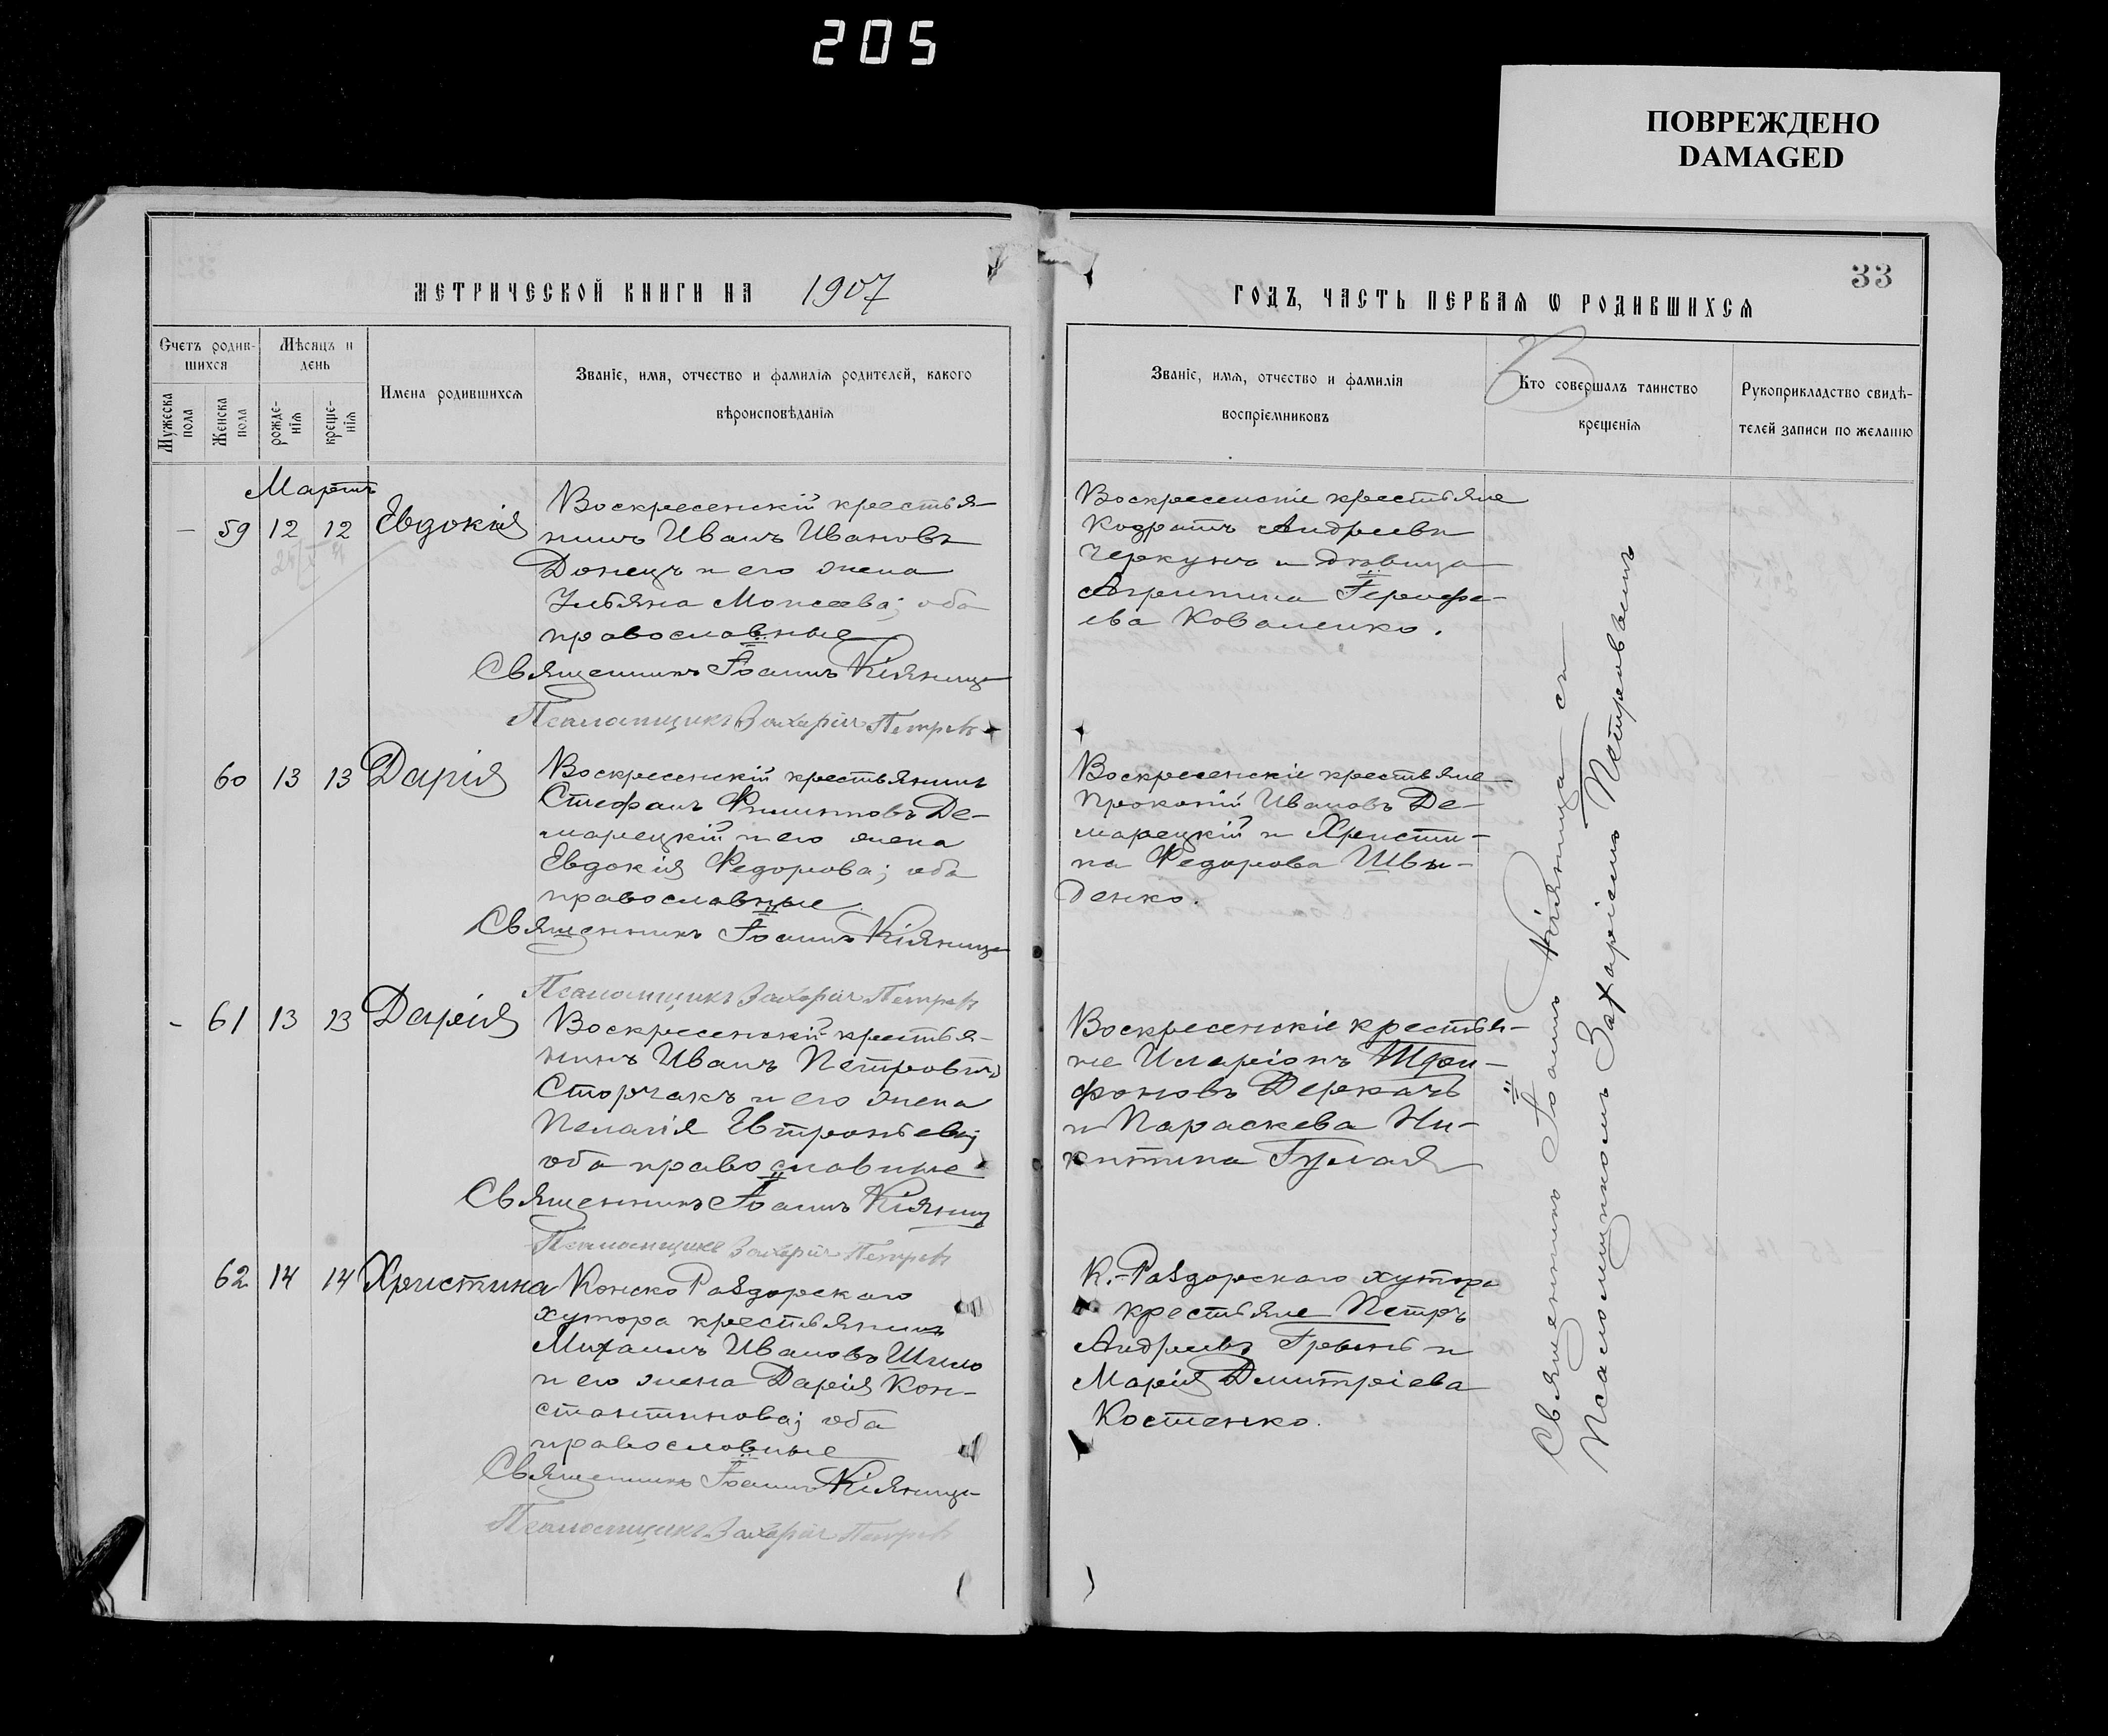 205
ПОВРЕЖДЕНО
DAMAGED
МЕТРИЧЕСКОЙ КНИГИ НА 1907
Счетъ родив-
шихся
Мужеска
пола
Женска
пола
Мѣсяцъ и
день
рожде-
нія
креще-
нія
Имена родившихся
Званіе, имя, отчество и фамилія родителей, какого
вѣроисповѣданія
Мартъ
59 12 12 Евдокія
Воскресенскій крестья-
нинъ Иванъ Ивановъ
Донецъ и его жена
Ульяна Моисеева; оба
православные
Священникъ Іоаннъ Кіяница
Псаломщикъ Захарій Петровъ
60 13 13 Дарія
Воскресенскій крестьянинъ
Стефанъ Филипповъ Де-
марецкій и его жена
Евдокія Федорова; оба
православные
Священникъ Іоаннъ Кіяница
Псаломщикъ Захарій Петровъ
- 61 13 13 Дарія
Воскресенскій крестья-
нинъ Иванъ Петровъ
Сторчакъ и его жена
Пелагія Евтропіева;
оба православные
Священникъ Іоаннъ Кіяница
Псаломщикъ Захарій Петровъ
62 14 14 Христина
Конско Раздорскаго
хутора крестьянинъ
Михаилъ Ивановъ Шило
и его жена Дарія Кон-
стантинова; оба
православные
Священникъ Іоаннъ Кіяница
Псаломщикъ Захарій Петровъ
33
ГОДЪ, ЧАСТЬ ПЕРВАЯ Ѡ РОДИВШИХСЯ
Званіе, имя, отчество и фамилія
воспріемниковъ
Кто совершалъ таинство
крещенія
Рукоприкладство свидѣ-
телей записи по желанію
Воскресенскіе крестьяне
Кодратъ Андреевъ
Черкунъ и дѣвица
Агрипина
ева Коваленко.
Воскресенскіе крестьяне
Прокопій Ивановъ Де-
марецкій и Христи-
на Федорова Швы-
денко.
Воскресенскіе крестья-
не Иларіонъ Три-
фоновъ Деркачъ
и Параскева Ни-
китина Гулая
К.-Раздорскаго хутора
крестьяне Петръ
Андреевъ Гревень и
Марія Димитріева
Костенко.
Священникъ Іоаннъ Кіяница съ
Псаломщикомъ Захаріемъ Петровымъ